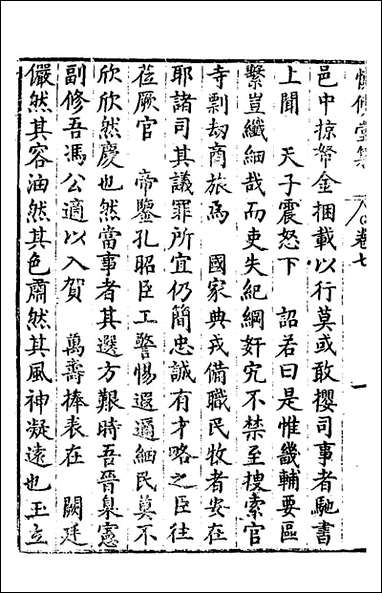 邑中掠帑金捆載以行莫或敢攖司事者馳書
上聞　天子震怒下　詔若曰是惟畿輔要區
繫豈纖細哉而吏失紀綱奸宄不禁至搜索官
寺剽劫商旅焉　國家典戎備職民牧者安在
耶諸司其議罪所宜仍簡忠誠有才略之臣往
莅厥官　帝鑒孔昭臣工警惕遐邇緬民莫不
欣欣然慶也然當事者其選方艱時吾晉臬憲
副修吾馮公適以入賀　萬壽捧表在　闕廷
儼然其容油然其色肅然其風神凝遠也玉立
堂集
卷七